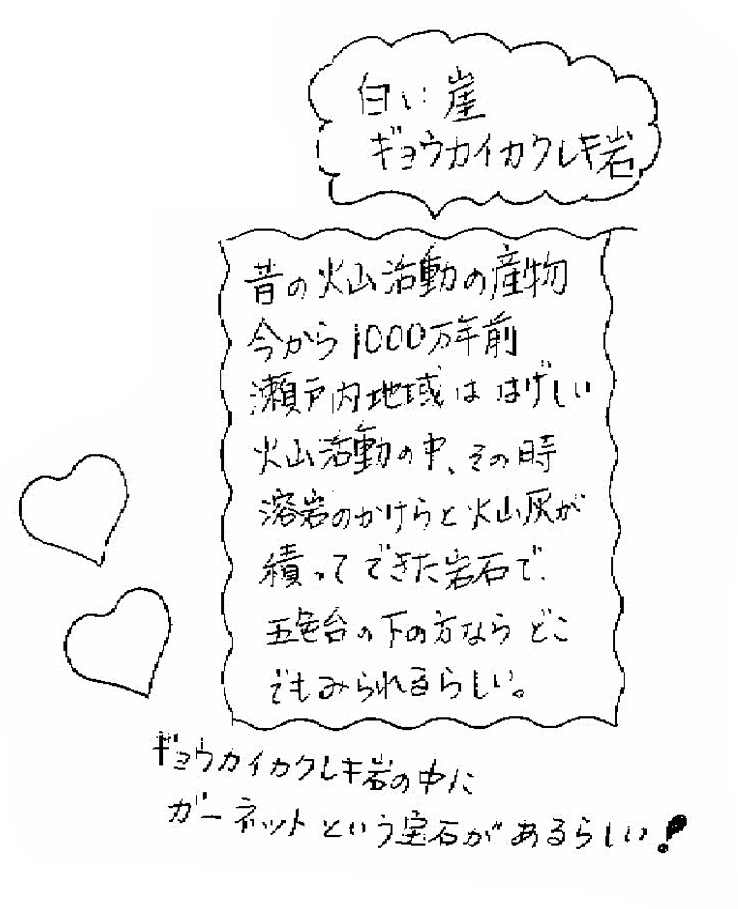 白い崖
ギョウカイカクレキ岩
昔の火山活動の産物
今から1000万年前
瀬戸内地域ははげしい
火山活動の中、その時
溶岩のかけらと火山灰が
積ってできた岩石で、
五色台の下の方ならどこ
でもみられるらしい。
ギョウカイカクレキ岩の中に
ガーネットという宝石があるらしい!